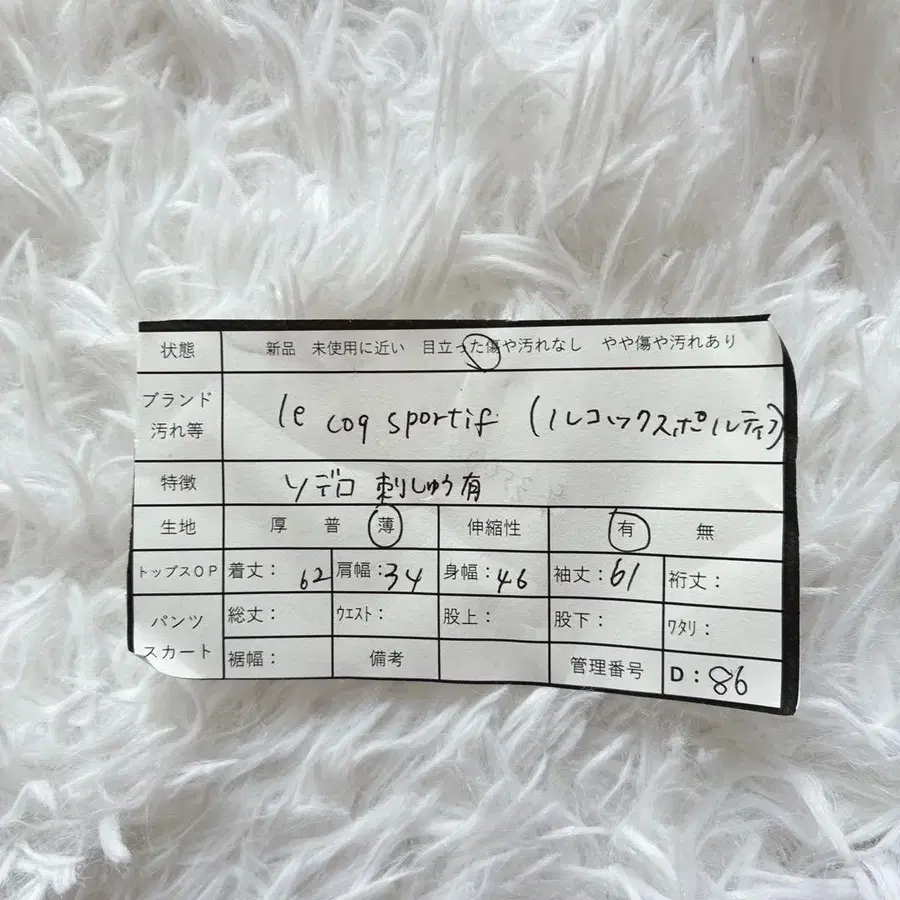 状態 新品 未使用に近い 目立った傷や汚れなし やや傷や汚れあり
ブランド
汚れ等 le coq sportif (ルコックスポルティフ)
特徴 ソデロ 刺しゅう有
生地 厚 普 薄 伸縮性 有 無
トップスOP 着丈: 62 肩幅:34 身幅:46 袖丈:61 裄丈:
パンツ
スカート 総丈: ウエスト: 股上: 股下: ワタリ:
裾幅: 備考 管理番号 D:86